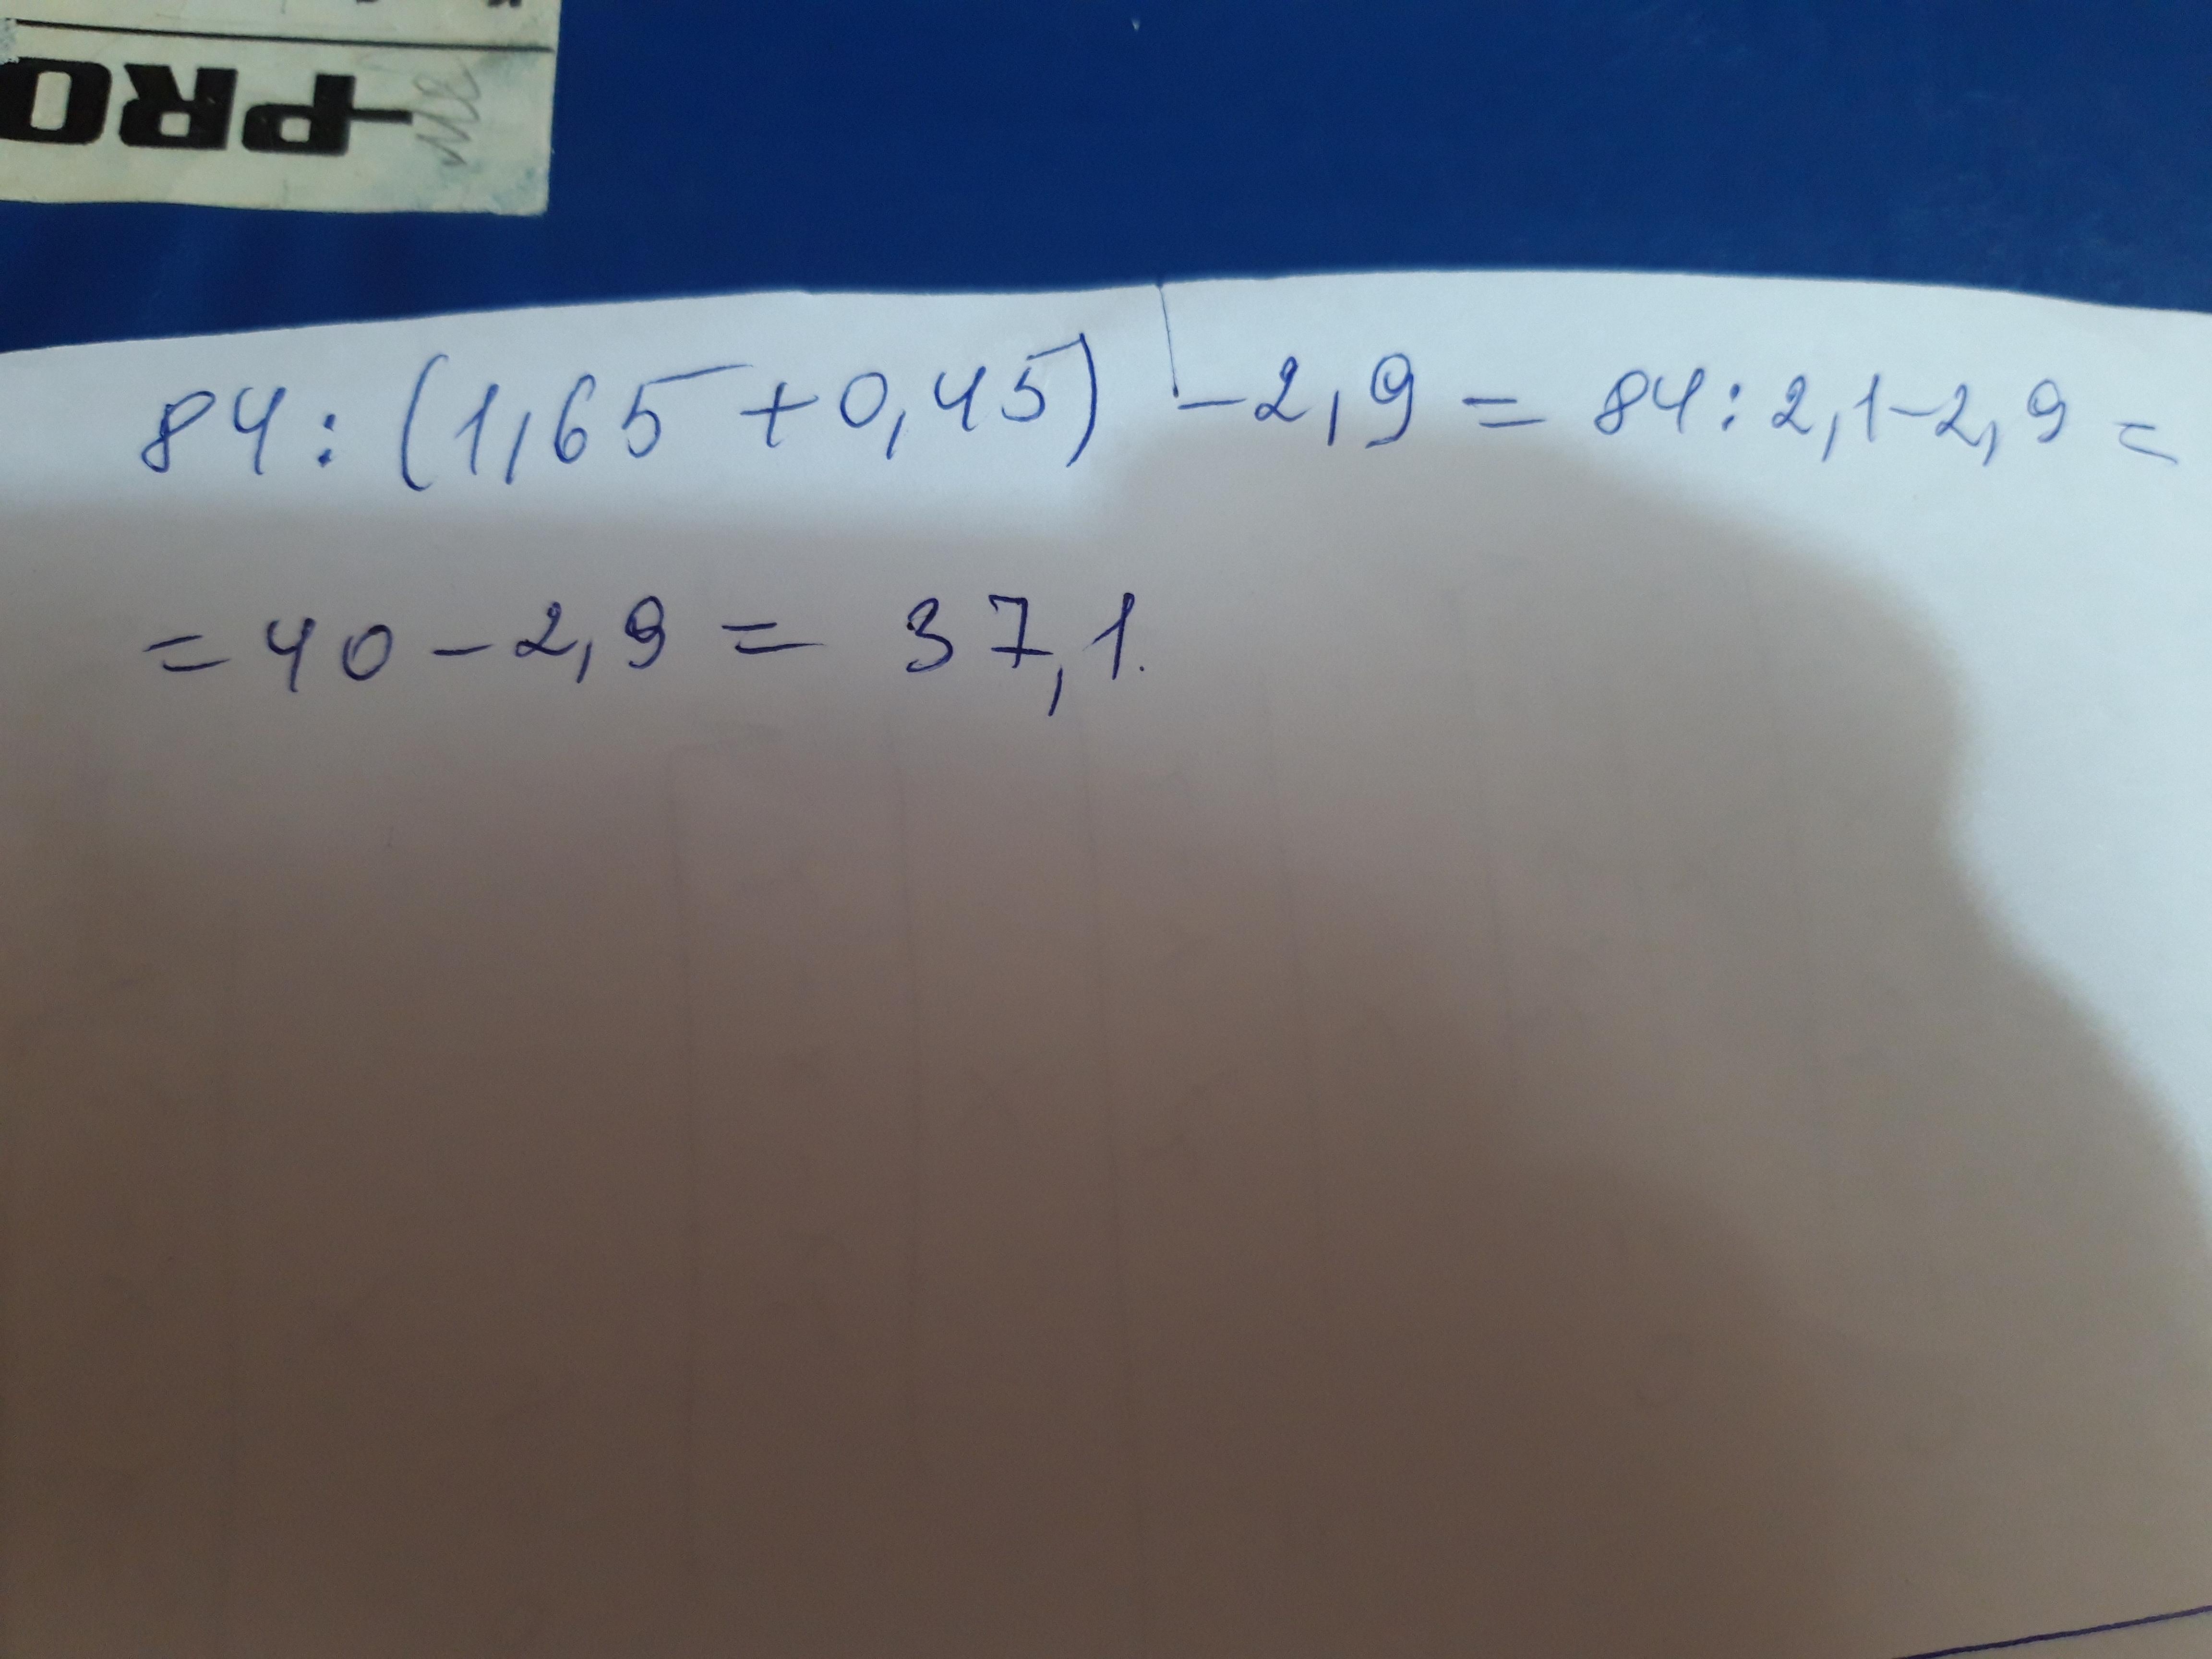 -PRO
84 : (1,65 + 0,45) - 2,9 = 84 : 2,1 - 2,9 =
= 40 - 2,9 = 37,1.